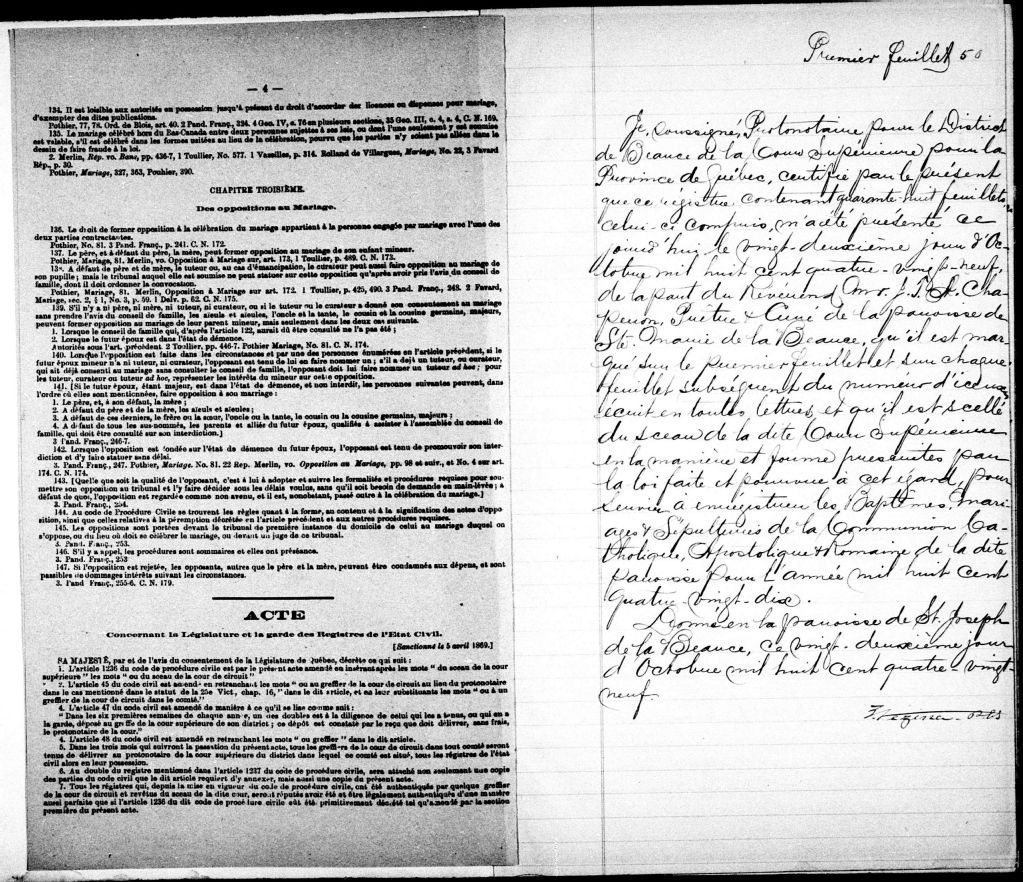 — 4 —
134. Il est loisible aux autorités en possession jusqu'à présent du droit d'accorder des licences ou dispenses pour mariage,
d'exempter des dites publications.
Pothier, 77, 78. Ord. de Blois, art. 40. 2 Pand. Franç., 324. 4 Geo. IV, c. 76 en plusieurs sections, 35 Geo. III, c. 4, s. 4, C. N. 169.
135. Le mariage célébré hors du Bas-Canada entre deux personnes sujettes à ses lois, ou dont l'une seulement y est soumise
est valable, s'il est célébré dans les formes usitées au lieu de la célébration, pourvu que les parties n'y soient pas allées dans le
dessin de faire fraude à la loi.
2. Merlin, Rép. vo. Banc, pp. 436-7, 1 Toullier, No. 577. 1 Vazeilles, p. 314. Rolland de Villargues, Mariage, No. 22, 3 Favard
Rép., p. 30.
Pothier, Mariage, 327, 363, Pouhier, 390.
CHAPITRE TROISIÈME.
Des oppositions au Mariage.
136. Le droit de former opposition à la célébration du mariage appartient à la personne engagée par mariage avec l'une des
deux parties contractantes.
Pothier, No. 81. 3 Pand. Franç., p. 241. C. N. 172.
137. Le père, et à défaut du père, la mère, peut former opposition au mariage de son enfant mineur.
Pothier, Mariage, 81. Merlin, vo. Opposition à Mariage sur, art. 173, 1 Toullier, p. 489. C. N. 173.
138. A défaut de père et de mère, le tuteur ou, au cas d'émancipation, le curateur peut aussi faire opposition au mariage de
son pupille; mais le tribunal auquel elle est soumise ne peut statuer sur cette opposition qu'après avoir pris l'avis du conseil de
famille, dont il doit ordonner la convocation.
Pothier, Mariage, 81. Merlin, Opposition à Mariage sur art. 172. 1 Toullier, p. 425, 490. 3 Pand. Franç., 248. 2 Favard,
Mariage, sec. 2, § 1, No. 3, p. 59. 1 Delv. p. 62. C. N. 175.
139. S'il n'y a ni père, ni mère, ni tuteur, ni curateur, ou si le tuteur ou le curateur a donné son consentement au mariage
sans prendre l'avis du conseil de famille, les aïeuls et aïeules, l'oncle et la tante, le cousin et la cousine germains, majeurs,
peuvent former opposition au mariage de leur parent mineur, mais seulement dans les deux cas suivants.
1. Lorsque le conseil de famille qui, d'après l'article 122, aurait dû être consulté ne l'a pas été;
2. Lorsque le futur époux est dans l'état de démence.
Autorités sous l'art. précédent. 2 Toullier, pp. 446-7. Pothier Mariage, No. 81. C. N. 174.
140. Lorsque l'opposition est faite dans les circonstances et par une des personnes énumérées en l'article précédent, si le
futur époux mineur n'a ni tuteur, ni curateur, l'opposant est tenu de lui en faire nommer un; s'il a déjà un tuteur, ou curateur,
qui ait déjà consenti au mariage sans consulter le conseil de famille, l'opposant doit lui faire nommer un tuteur ad hoc; pour
les tuteur, curateur ou tuteur ad hoc, représenter les intérêts du mineur sur cette opposition.
141. [Si le futur époux, étant majeur, est dans l'état de démence, et non interdit, les personnes suivantes peuvent, dans
l'ordre où elles sont mentionnées, faire opposition à son mariage:
1. Le père, et, à son défaut, la mère;
2. A défaut du père et de la mère, les aïeuls et aïeules;
3. A défaut de ces derniers, le frère ou la sœur, l'oncle ou la tante, le cousin ou la cousine germains, majeurs;
4. A défaut de tous les sus-nommés, les parents et alliés du futur époux, qualifiés à assister à l'assemblée du conseil de
famille, qui doit être consulté sur son interdiction.]
3 Pand. Franç., 246-7.
142. Lorsque l'opposition est fondée sur l'état de démence du futur époux, l'opposant est tenu de promouvoir son inter-
diction et d'y faire statuer sans délai.
3. Pand. Franç., 247. Pothier, Mariage. No. 81. 22 Rep. Merlin, vo. Opposition au Mariage, pp. 98 et suiv., et No. 4 sur art.
174. C. N. 174.
143. [Quelque soit la qualité de l'opposant, c'est à lui à adopter et suivre les formalités et procédures requises pour sou-
mettre son opposition au tribunal et l'y faire décider sous les délais voulus, sans qu'il soit besoin de demande en main-levée; à
défaut de quoi, l'opposition est regardée comme non avenue, et il est, nonobstant, passé outre à la célébration du mariage.]
3. Pand. Franç., 254.
144. Au code de Procédure Civile se trouvent les règles quant à la forme, au contenu et à la signification des actes d'oppo-
sition, ainsi que celles relatives à la péremption décrétée en l'article précédent et aux autres procédures requises.
145. Les oppositions sont portées devant le tribunal de première instance du domicile de celui au mariage duquel on
s'oppose, ou du lieu où doit se célébrer le mariage, ou devant un juge de ce tribunal.
3. Pand. Franç., 253.
146. S'il y a appel, les procédures sont sommaires et elles ont préséance.
3. Pand. Franç., 253
147. Si l'opposition est rejetée, les opposants, autres que le père et la mère, peuvent être condamnés aux dépens, et sont
passibles de dommages intérêts suivant les circonstances.
3. Pand Franç., 255-6. C. N. 179.
ACTE
Concernant la Législature et la garde des Registres de l'Etat Civil.
[Sanctionné le 5 avril 1869.]
SA MAJESTÉ, par et de l'avis du consentement de la Législature de Québec, décrète ce qui suit:
1. L'article 1236 du code de procédure civile est par le présent acte amendé en insérant après les mots "du sceau de la cour
supérieure" les mots "ou du sceau de la cour de circuit"
2. L'article 45 du code civil est amendé en retranchant les mots "ou au greffier de la cour de circuit au lieu du protonotaire
dans le cas mentionné dans le statut de la 25e Vict., chap. 16," dans le dit article, et en leur substituants les mots "ou à un
greffier de la cour de circuit dans le comté."
4. L'article 47 du code civil est amendé de manière à ce qu'il se lise comme suit:
"Dans les six premières semaines de chaque année, un des doubles est à la diligence de celui qui les a tenus, ou qui en a
la garde, déposé au greffe de la cour supérieure de son district; ce dépôt est constaté par le reçu que doit délivrer, sans frais,
le protonotaire de la cour."
4. L'article 48 du code civil est amendé en retranchant les mots "ou greffier" dans le dit article.
5. Dans les trois mois qui suivront la passation du présent acte, tous les greffiers de la cour de circuit dans tout comté seront
tenus de délivrer au protonotaire de la cour supérieure du district dans lequel ce comté est situé, tous les régistres de l'état
civil alors en leur possession.
6. Au double du registre mentionné dans l'article 1237 du code de procédure civile, sera attaché non seulement une copie
des parties du code civil que le dit article requiert d'y annexer, mais aussi une copie du présent acte.
7. Tous les régistres qui, depuis la mise en vigueur du code de procédure civile, ont été authentiqués par quelque greffier
de la cour de circuit et revêtus du sceau de la dite cour, seront réputés avoir été et être légalement authentiqués d'une manière
aussi parfaite que si l'article 1236 du dit code de procédure civile eût été primitivement décrété tel qu'amendé par la section
première du présent acte.
Premier feuillet 50
Je, soussigné, Protonotaire pour le District
de Beauce de la Cour Supérieure pour la
Province de Québec, certifie par le présent
que ce régistre contenant quarante-huit feuillets,
celui-ci compris, m'a été présenté ce
jourd'hui le vingt-deuxième jour d'Oc-
tobre mil huit cent quatre-vingt-neuf,
de la part du Révérend Mr. J. T. A. Cha-
peron, Prêtre & Curé de la paroisse de
Ste. Marie de la Beauce, qu'il est mar-
qué sur le premier feuillet et sur chaque
feuillet subséquent du numéro d'iceux
écrit en toutes lettres, et qu'il est scellé
du sceau de la dite Cour Supérieure
en la manière et forme prescrites par
la loi faite et pourvue à cet égard, pour
servir à enregistrer les Baptêmes, Mari-
ages & Sépultures de la Communion Ca-
tholique, Apostolique & Romaine de la dite
paroisse pour l'année mil huit cent
quatre-vingt-dix.
Donné en la paroisse de St. Joseph
de la Beauce, ce vingt-deuxième jour
d'Octobre mil huit cent quatre-vingt-
neuf.